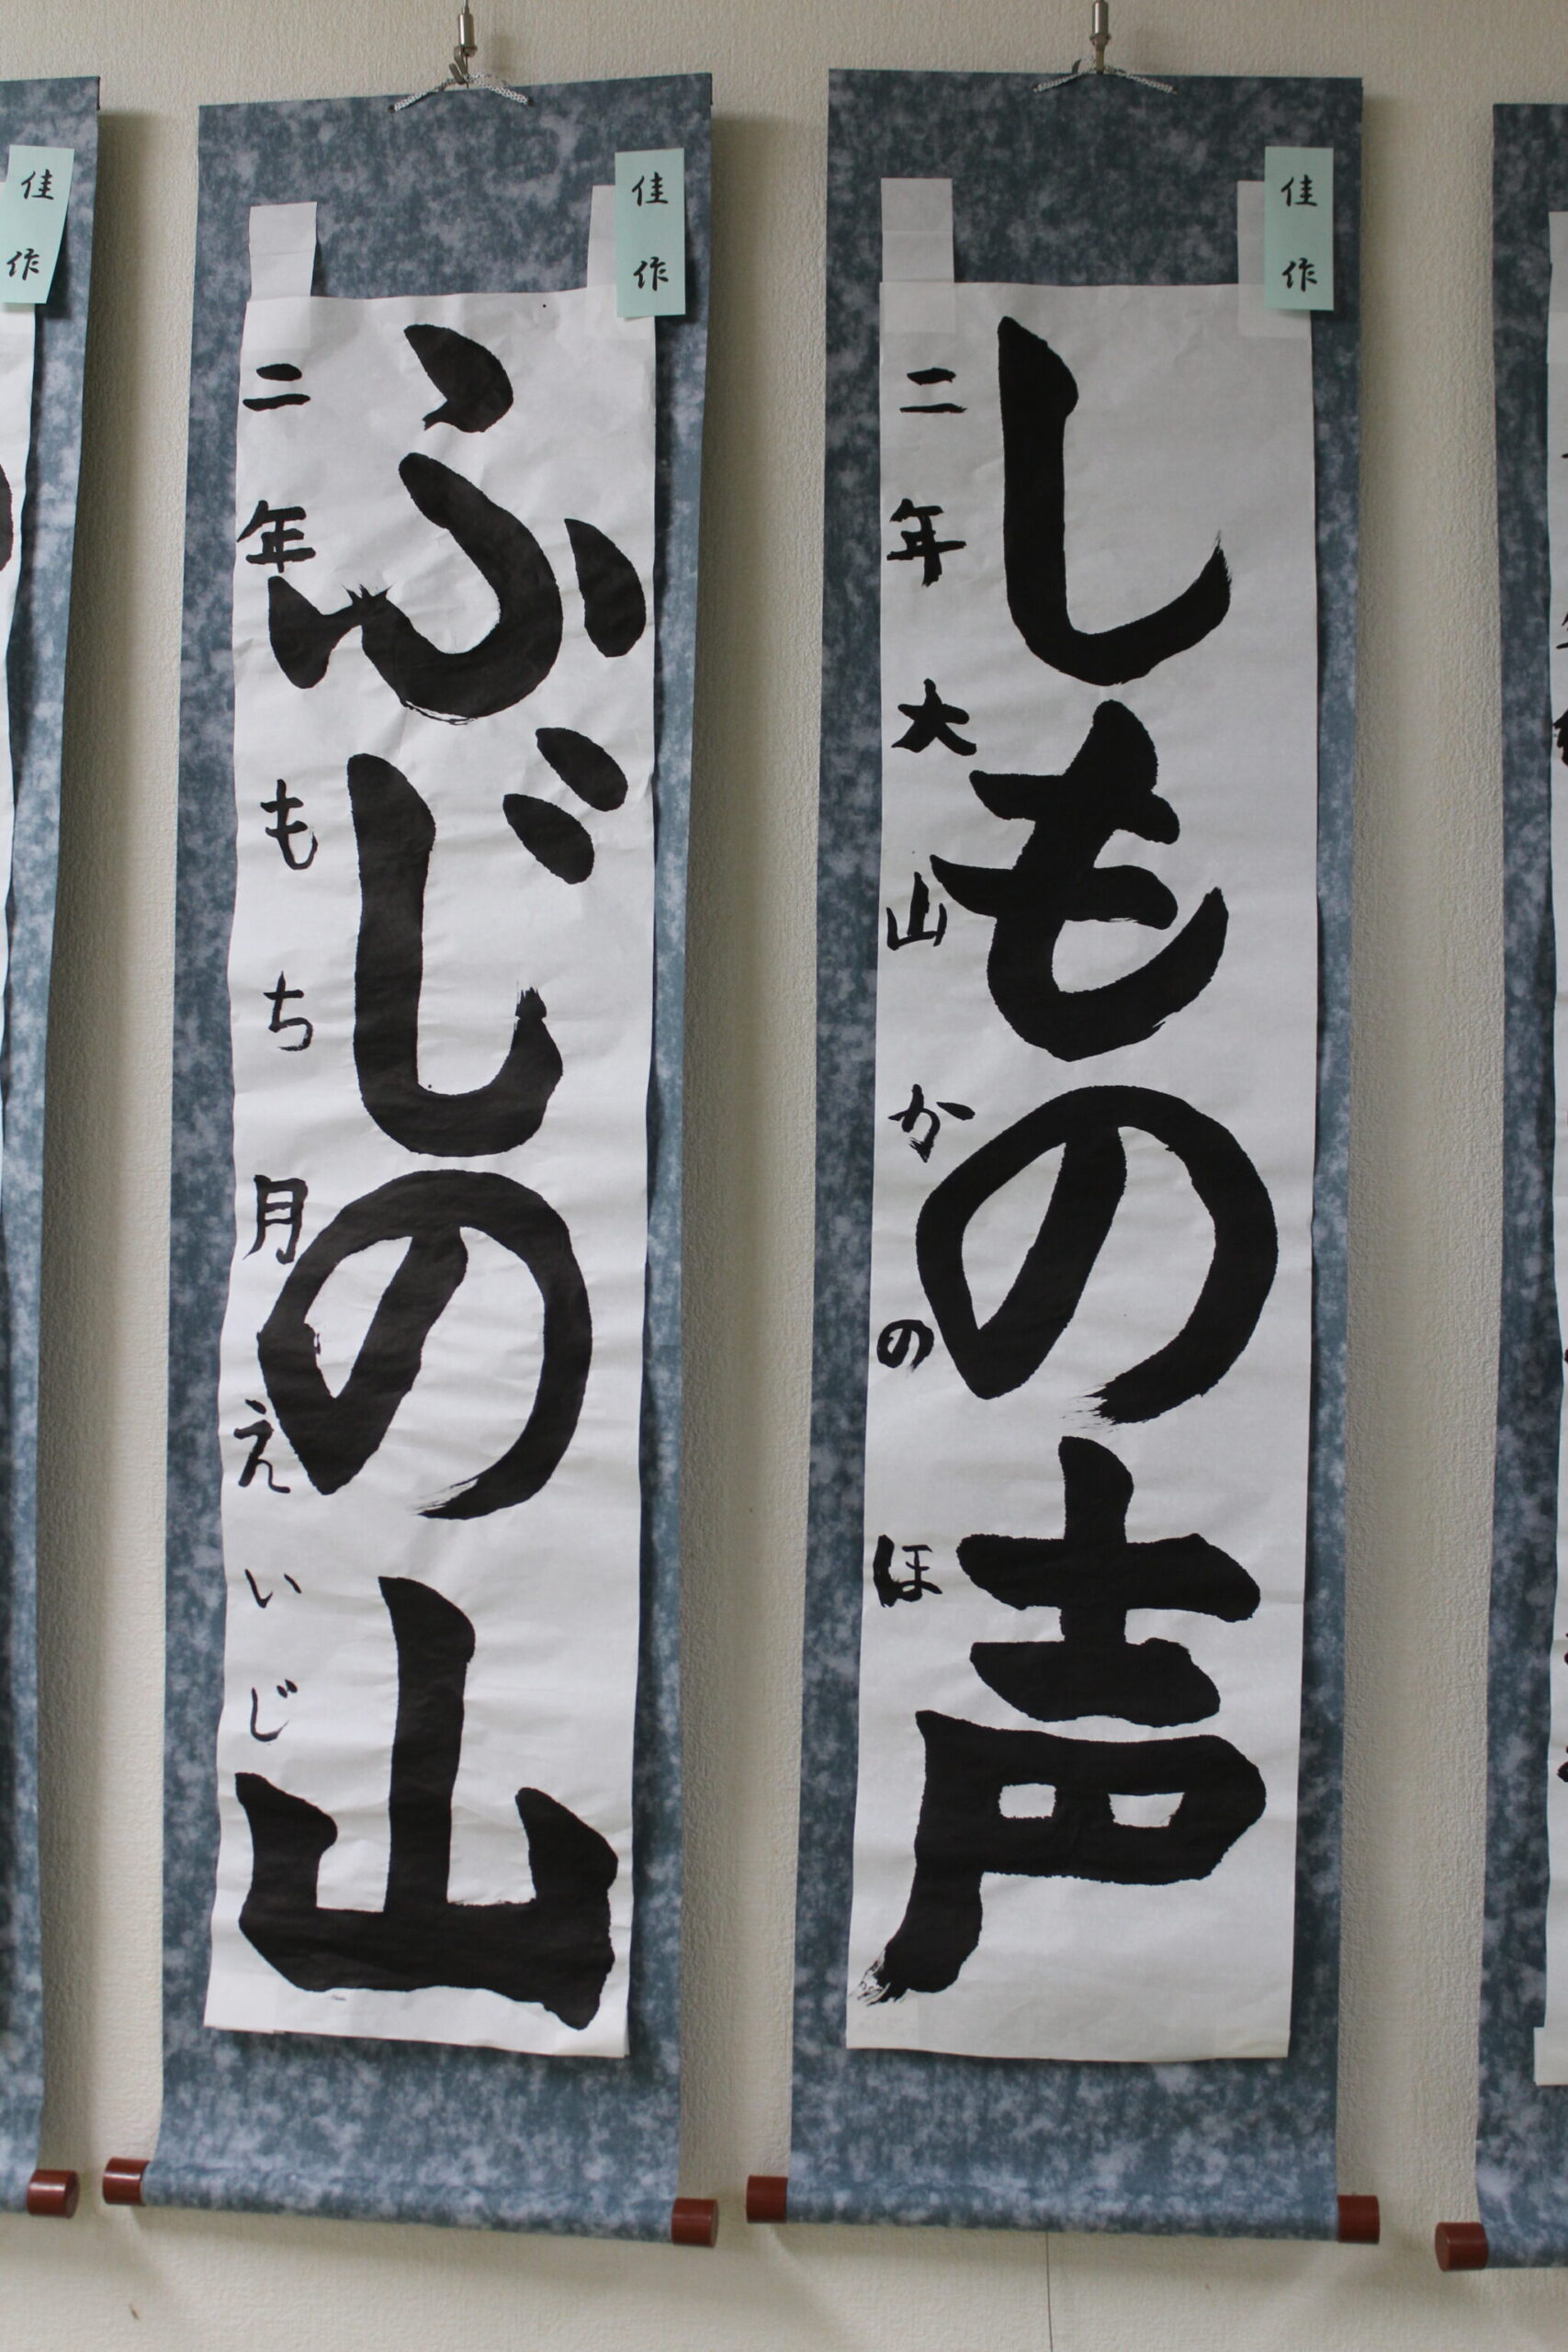 佳作
しもの声
二年大山かのほ
佳作
ふじの山
二年もち月えいじ
佳作